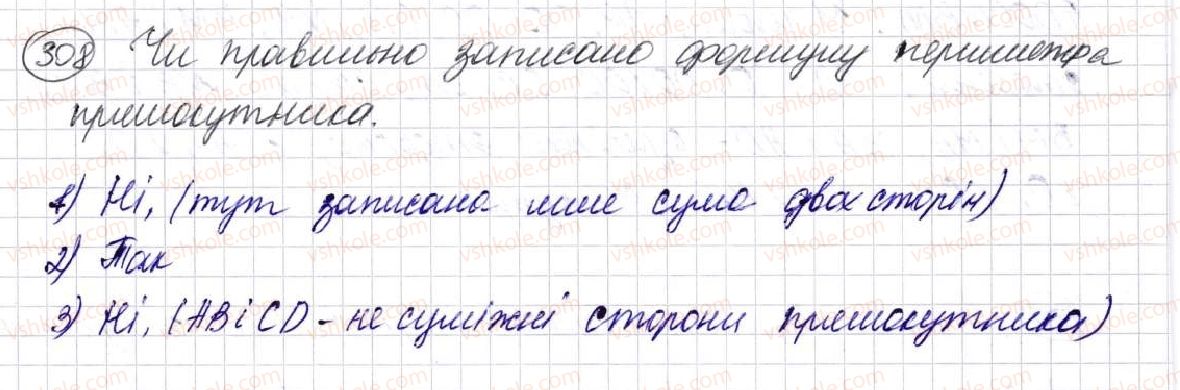 308 Чи правильно записано формулу периметра
прямокутника.
1) Ні, (тут записана лише сума двох сторін)
2) Так
3) Ні, (AB і CD - не суміжні сторони прямокутника)